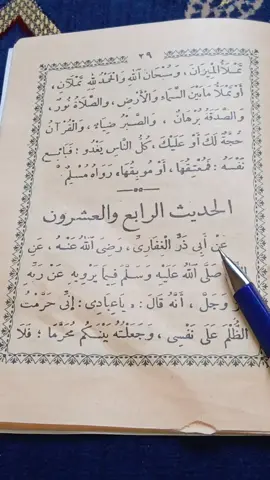 ٣٩
تَمْلَأُ الْمِيزَانَ ، وَسُبْحَانَ اللهِ وَالْحَمْدُ لِلهِ تَمْلَآنِ ،
أَوْ تَمْلَأُ مَا بَيْنَ السَّمَاءِ وَالْأَرْضِ ، وَالصَّلَاةُ نُورٌ ،
وَالصَّدَقَةُ بُرْهَانٌ ، وَالصَّبْرُ ضِيَاءٌ ، وَالْقُرْآنُ
حُجَّةٌ لَكَ أَوْ عَلَيْكَ ، كُلُّ النَّاسِ يَغْدُو : فَبَائِعٌ
نَفْسَهُ : فَمُعْتِقُهَا ، أَوْ مُوبِقُهَا» رَوَاهُ مُسْلِمٌ
الحديث الرابع والعشرون
عَنْ أَبِي ذَرٍّ الْغِفَارِيِّ ، رَضِيَ اللهُ عَنْهُ ، عَنِ
صَلَّى اللهُ عَلَيْهِ وَسَلَّمَ فِيمَا يَرْوِيهِ عَنْ رَبِّهِ
وَجَلَّ ، أَنَّهُ قَالَ : « يَا عِبَادِي : إِنِّي حَرَّمْتُ
الظُّلْمَ عَلَى نَفْسِي ، وَجَعَلْتُهُ بَيْنَكُمْ مُحَرَّمًا ؛ فَلَا